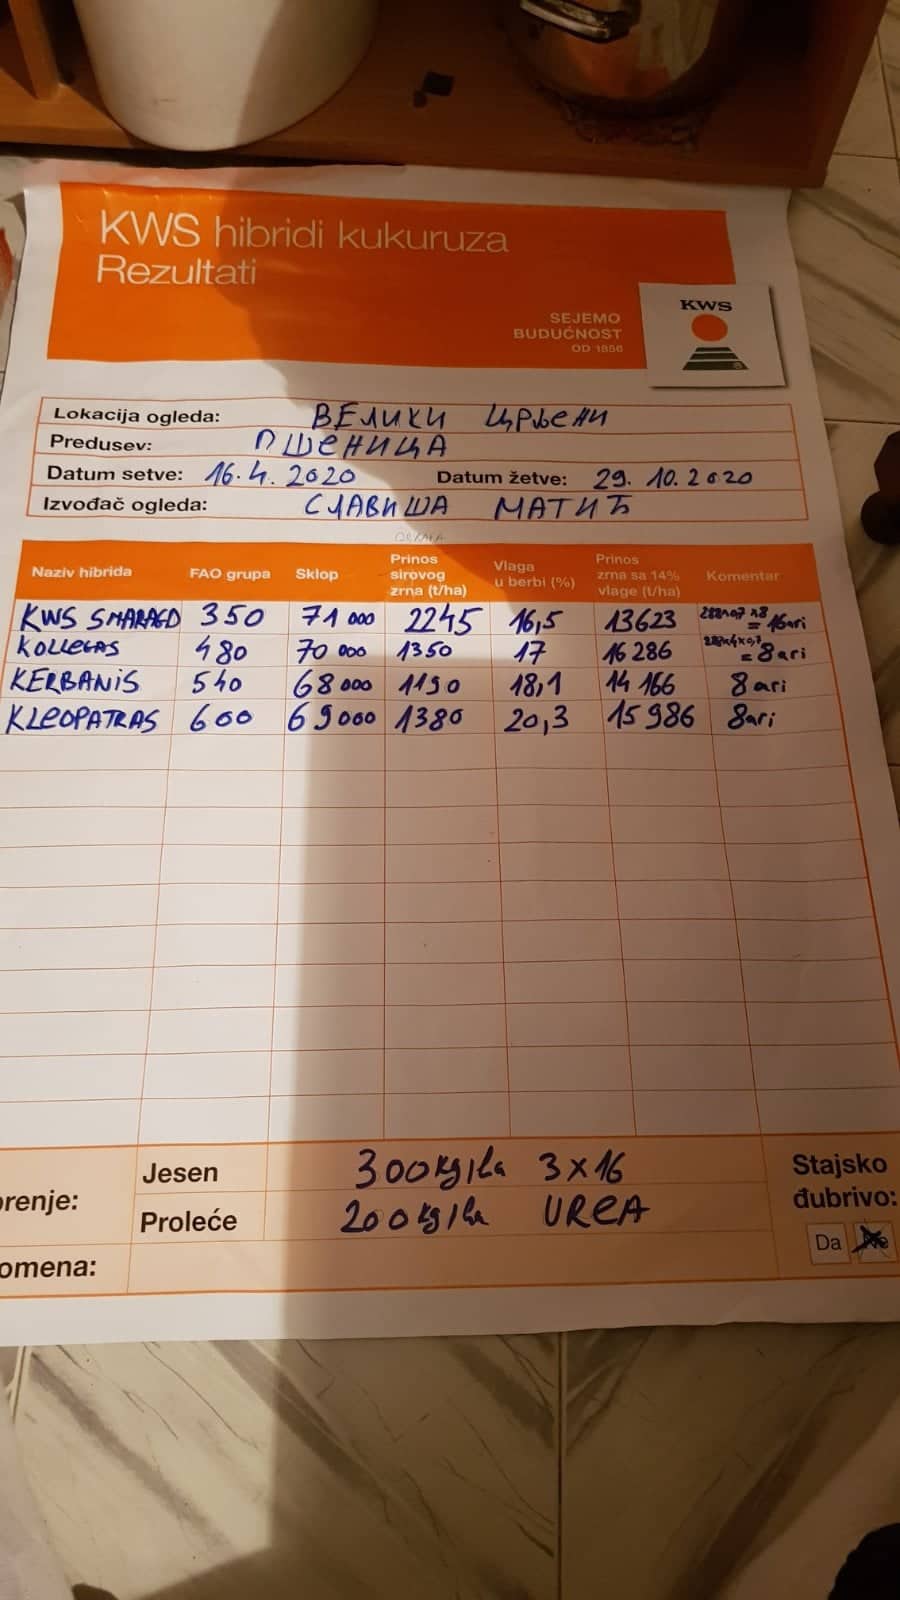 KWS hibridi kukuruza
Rezultati
SEJEMO
BUDUĆNOST
OD 1856
KWS
Lokacija ogleda: ВЕЛИКИ ЦРЉЕНИ
Predusev: ПШЕНИЦА
Datum setve: 16.4.2020 Datum žetve: 29.10.2020
Izvođač ogleda: СЛАВИША МАТИЋ
Naziv hibrida FAO grupa Sklop Prinos sirovog zrna (t/ha) Vlaga u berbi (%) Prinos zrna sa 14% vlage (t/ha) Komentar
KWS SMARAGD 350 71 000 2245 16,5 13623 = 16ari
KOLLEGAS 480 70 000 1350 17 16 286 = 8ari
KERBANIS 540 68 000 1190 18,1 14 166 8ari
KLEOPATRAS 600 69000 1380 20,3 15 986 8ari
renje: Jesen 300kg/ha 3x16
Proleće 200kg/ha UREA
omena:
Stajsko
đubrivo:
Da Ne